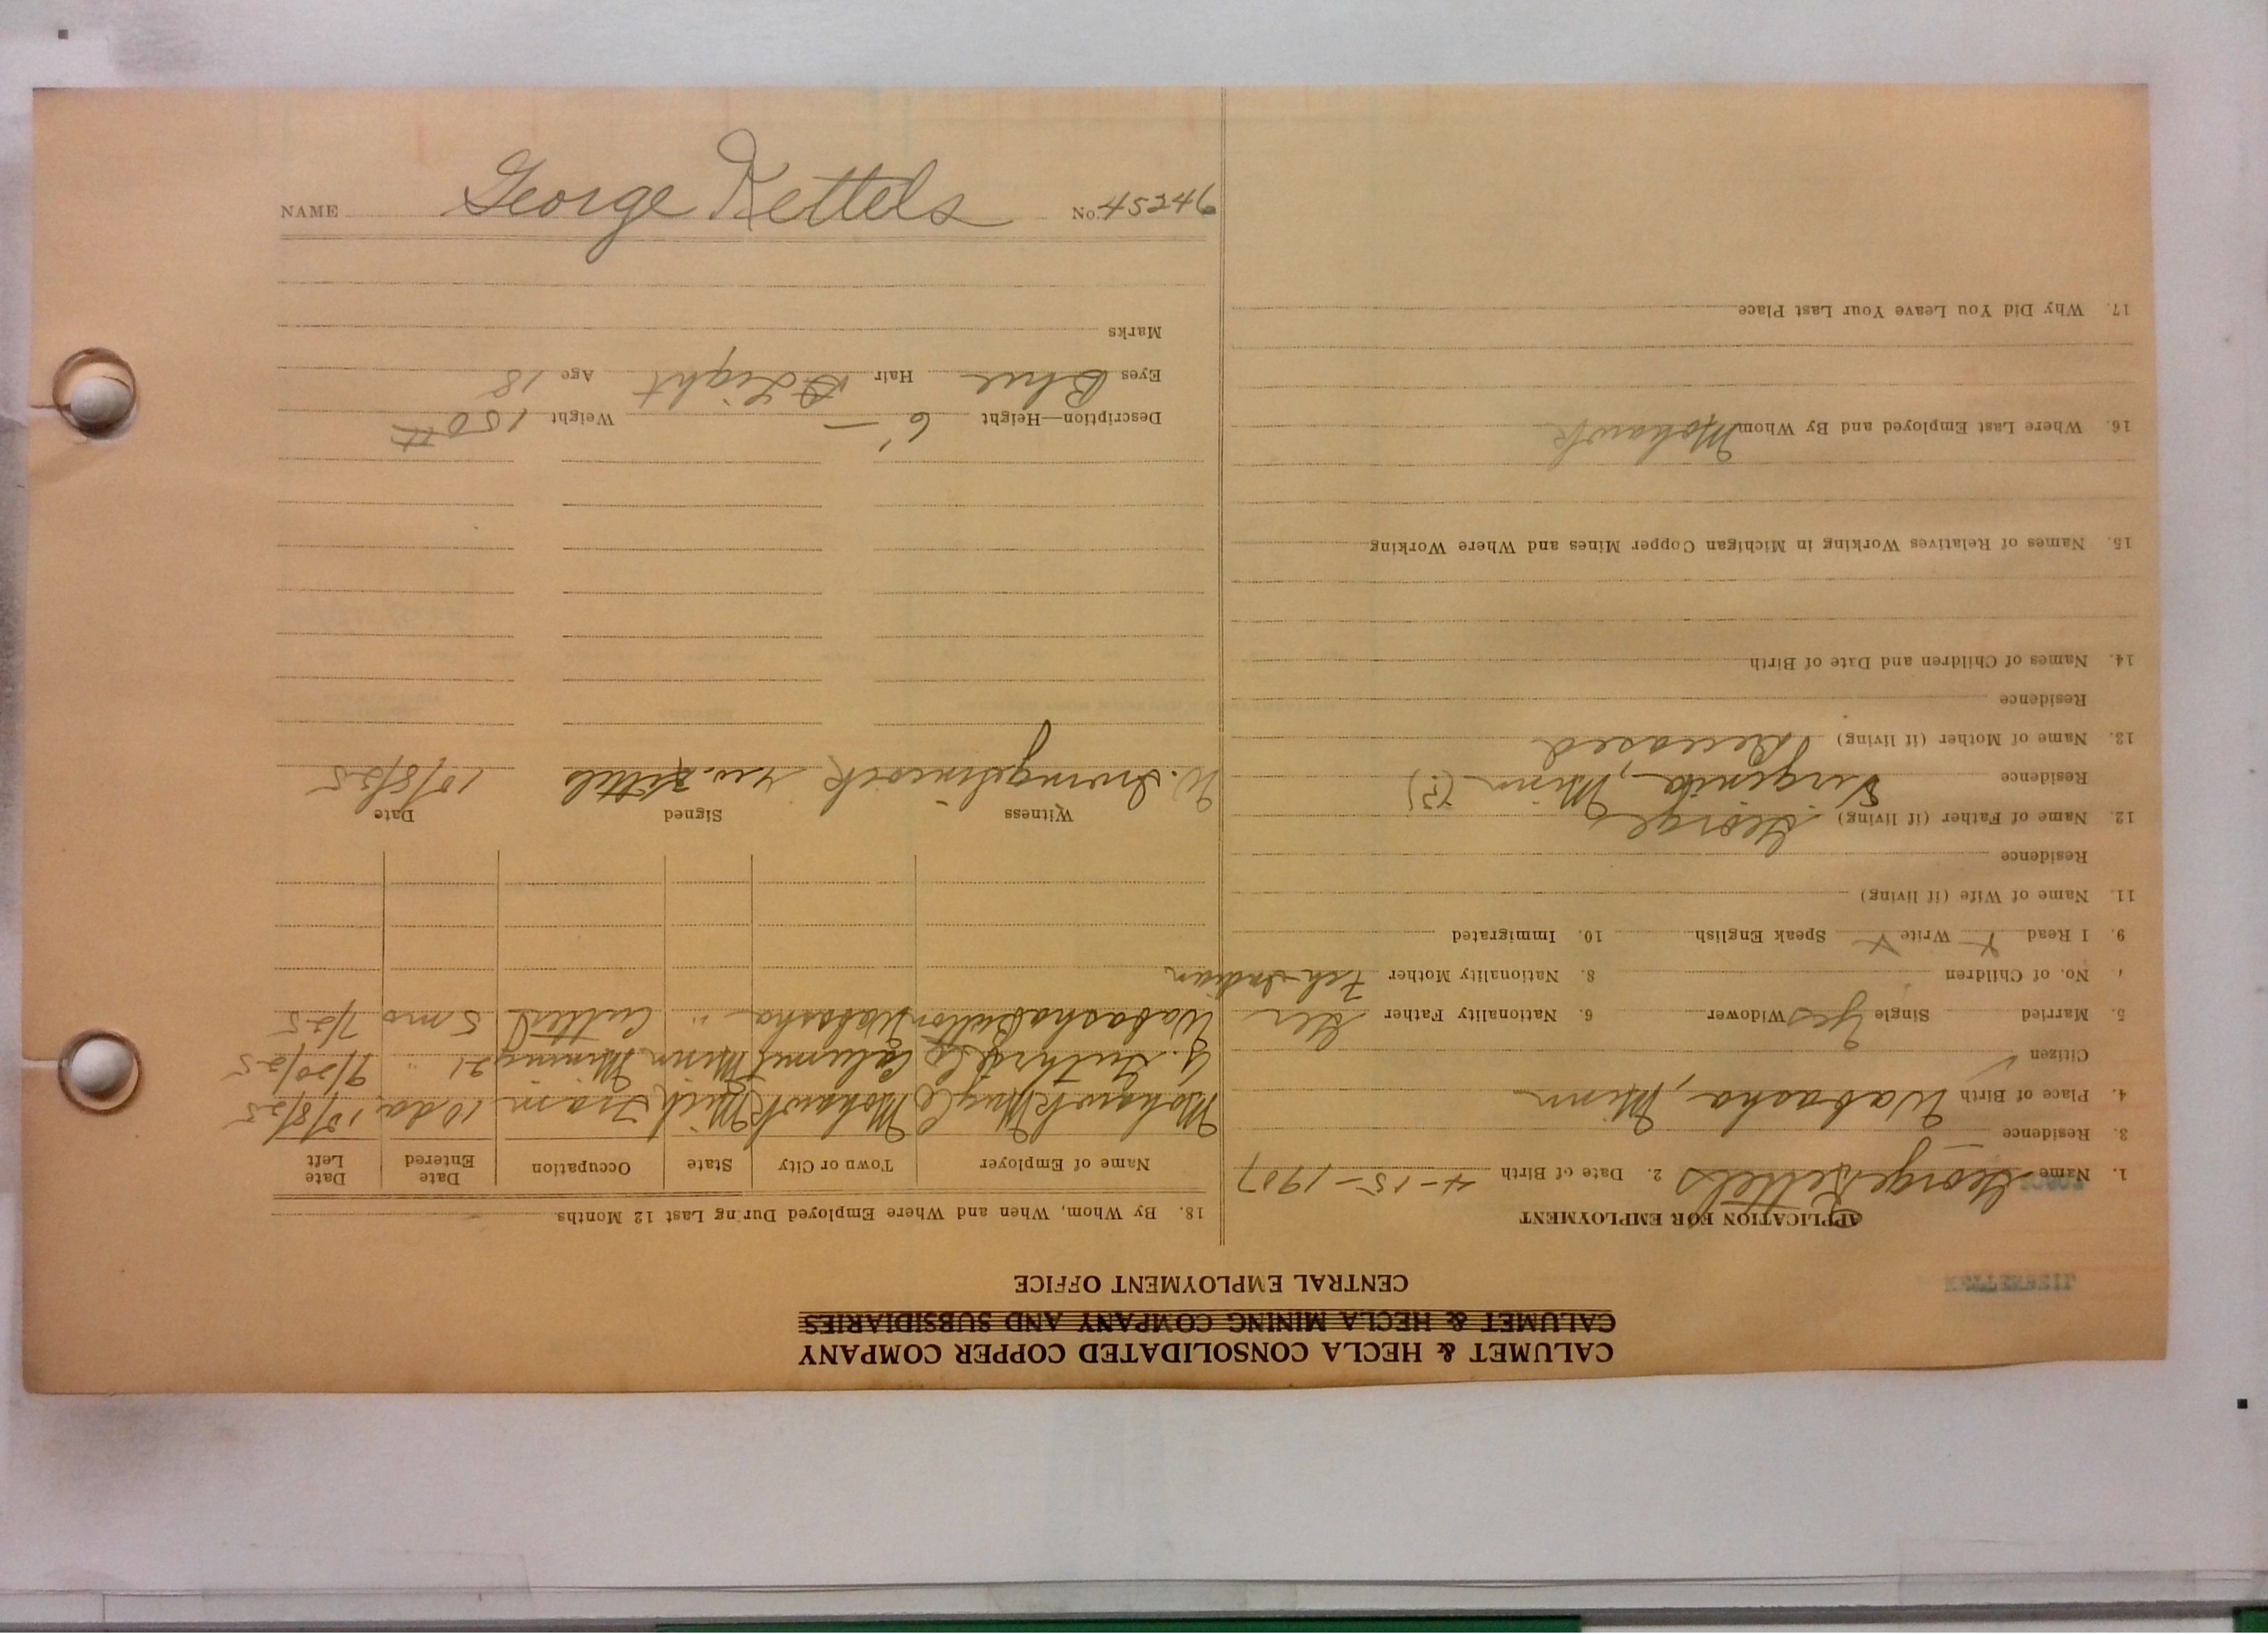 CALUMET & HECLA CONSOLIDATED COPPER COMPANY
CALUMET & HECLA MINING COMPANY AND SUBSIDIARIES
CENTRAL EMPLOYMENT OFFICE
APPLICATION FOR EMPLOYMENT
1. Name George Kettels 2. Date of Birth 4-15-1907
3. Residence
4. Place of Birth Wabasha, Minn
Citizen ✓
5. Married Single Yes Widower 6. Nationality Father Ger
No. of Children 8. Nationality Mother Fch-Indian
9. I Read X Write X Speak English 10. Immigrated
11. Name of Wife (if living)
Residence
12. Name of Father (if living) George
Residence Virginia, Minn (?)
13. Name of Mother (if living) Deceased
Residence
14. Names of Children and Date of Birth
15. Names of Relatives Working in Michigan Copper Mines and Where Working
16. Where Last Employed and By Whom Mohawk
17. Why Did You Leave Your Last Place
18. By Whom, When and Where Employed During Last 12 Months
Name of Employer Town or City State Occupation Date Entered Date Left
Mohawk Mng Co Mohawk Mich Tram 10 da 10/8/25
Co Calumet Minn Mining 21 " 9/20/25
Wabasha Button Wabasha " Cutter 5 mo 7/25
Witness Signed Date
W. Geo. Kettels 10/8/25
Description—Height 6'— Weight 150 #
Eyes Blue Hair Light Age 18
Marks
NAME George Kettels No. 45246